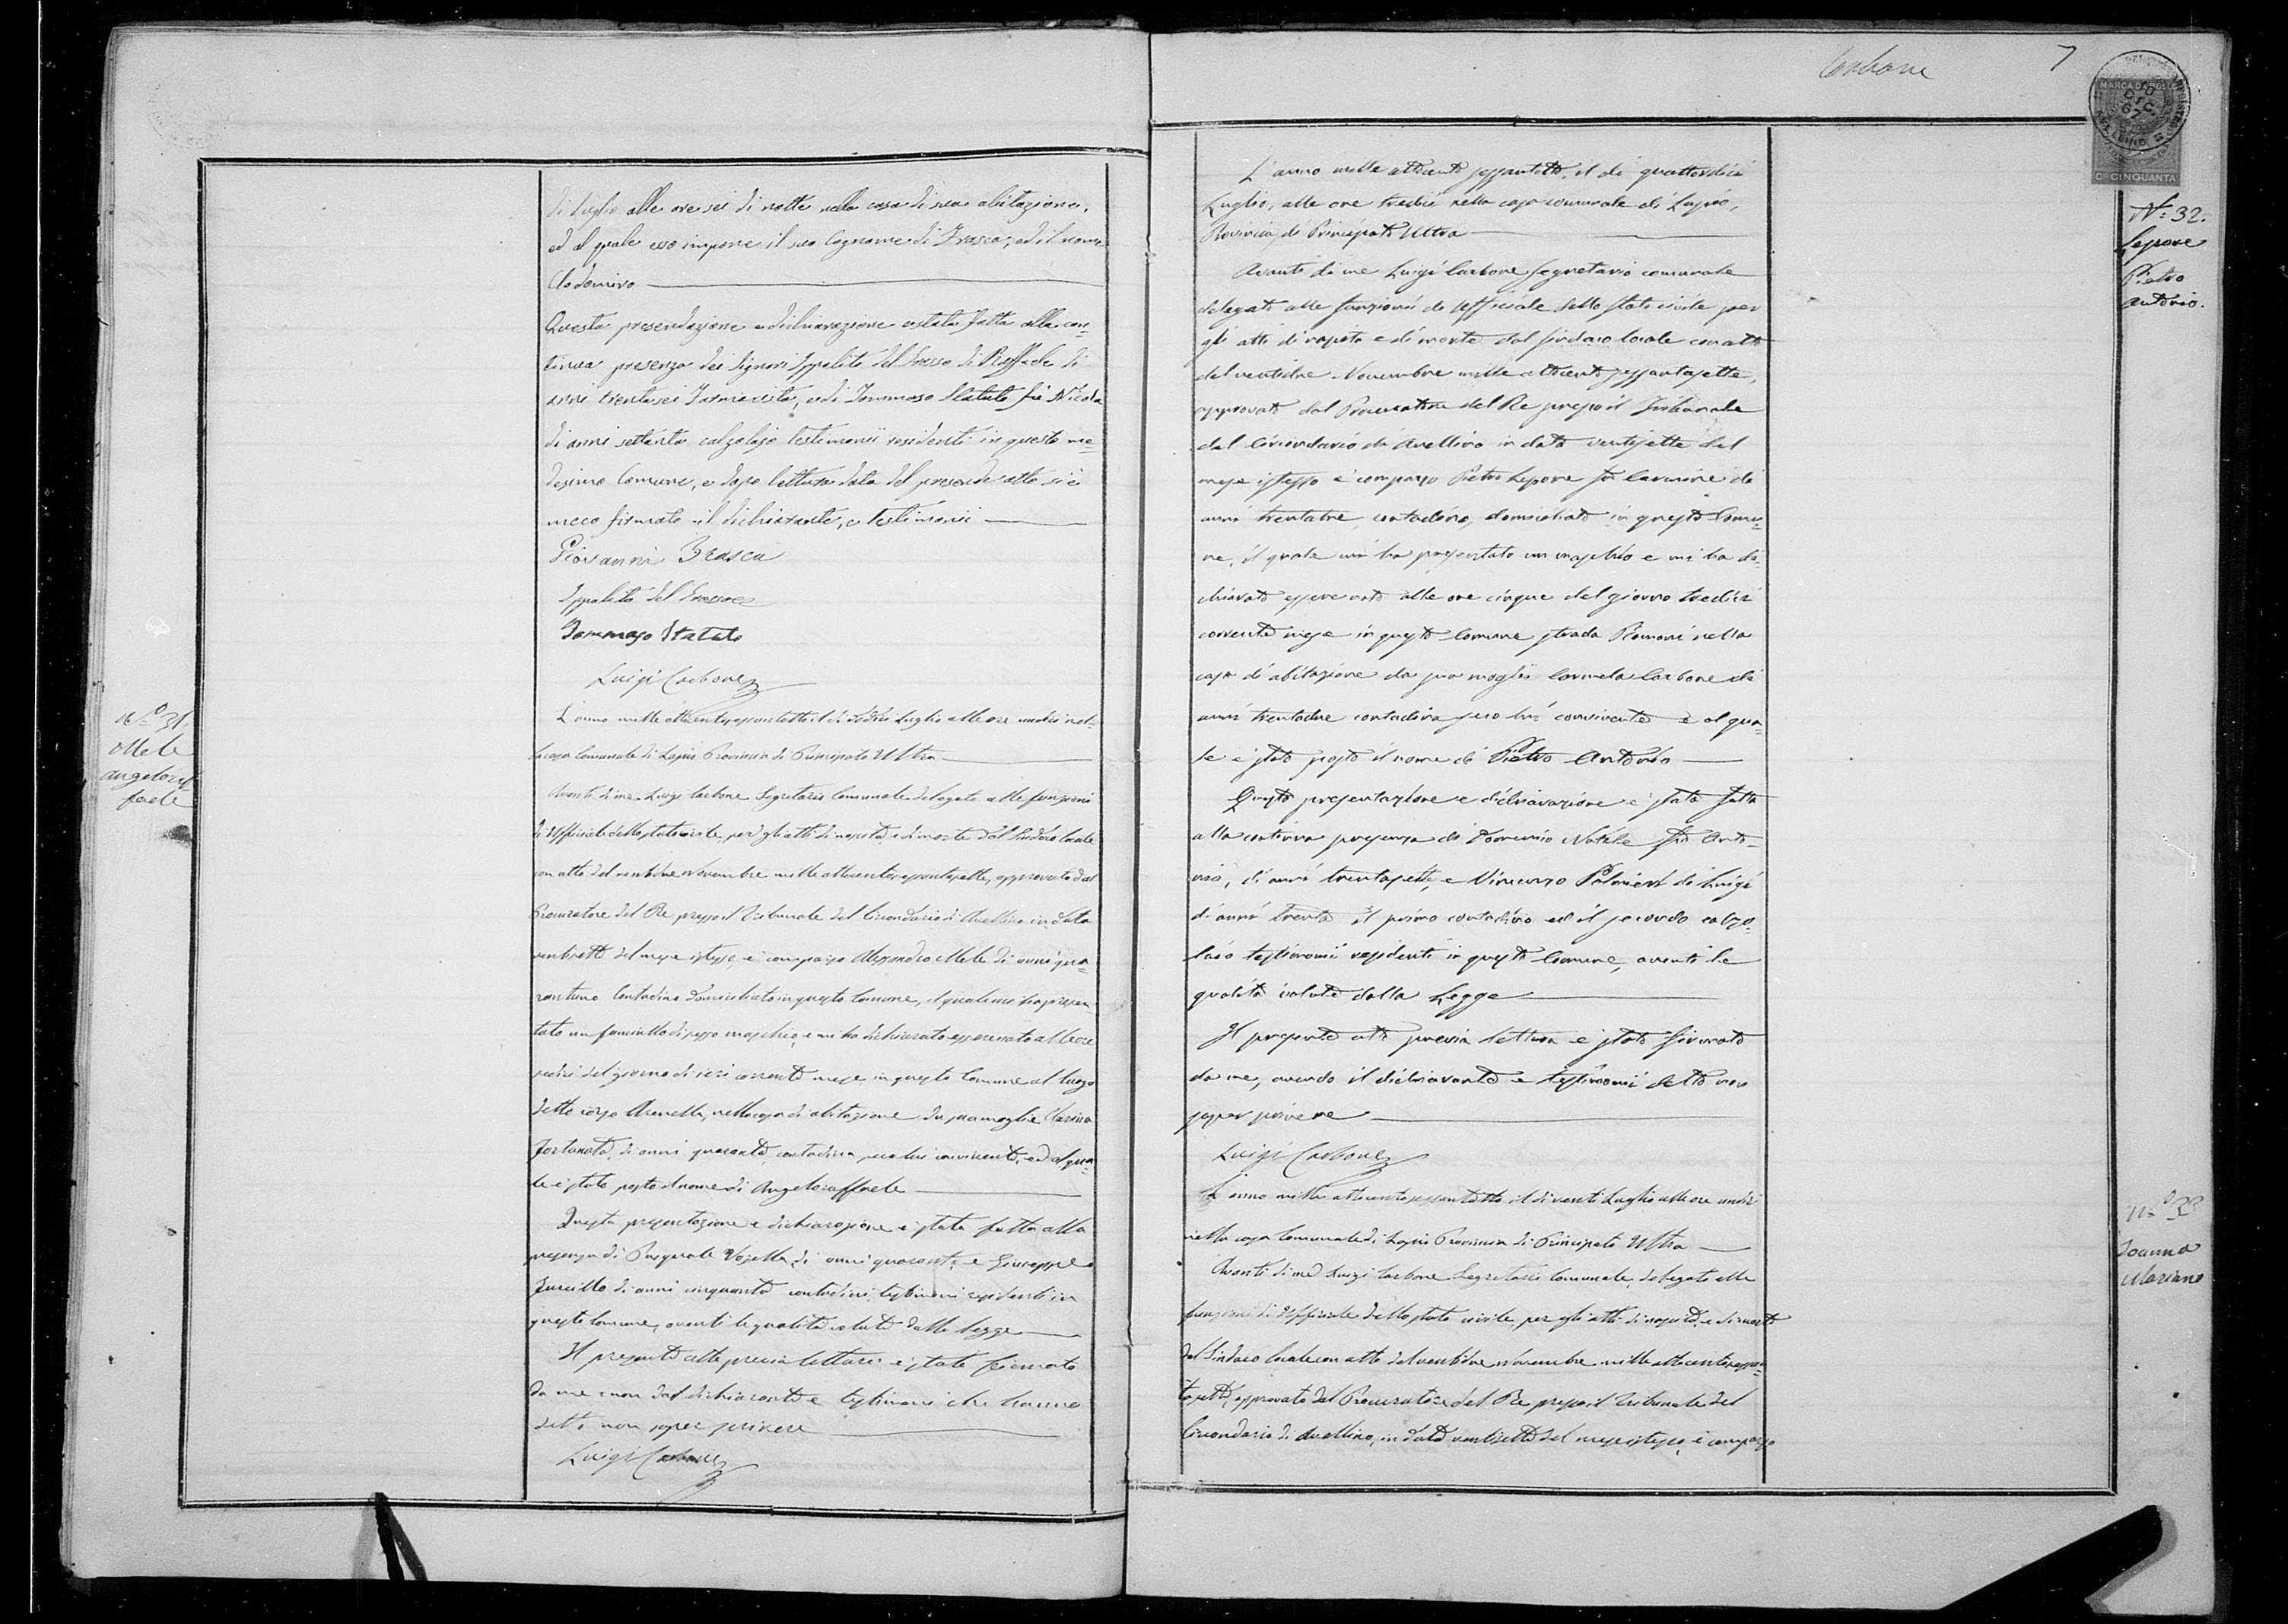 di Luglio alle ore sei di notte nella casa di sua abitazione,
ed al quale esso impone il suo Cognome di Frasca, ed il nome
Clodomiro
Questa presendazione e dichiarazione è stata fatta alla con=
tinua presenza dei Signori Ippolito del Grosso di Raffaele di
anni trentasei Farmacista, e di Tommaso Statuto fu Nicola
di anni settanta calzolajo testimonii residenti in questo me=
desimo Comune, e dopo lettura data del presente atto si è
meco firmato il dichiarante, e testimonii
Giovanni Frasca
Ippolito del Grosso
Tommaso Statuto
Luigi Carbone
N.º 31.
Mele
Angeloraf
faele
L'anno mille ottocentosessantotto il di Luglio alle ore undici nel=
la casa Comunale di Lapio Provincia di Principato Ultra
Avanti di me Luigi Carbone Segretario Comunale delegato alle funzioni
di Uffiziale dello stato civile, per gli atti di nascita, e di morte dal Sindaco locale
con atto del ventidue Novembre mille ottocentosessantasette, approvato dal
Procuratore del Re presso il Tribunale del Circondario di Avellino in data
ventisette del mese istesso, è comparso Alessandro Mele di anni qua=
rantuno Contadino domiciliato in questo Comune, il quale mi ha presen=
tato un fanciullo di sesso maschio, e mi ha dichiarato esser nato alle ore
sedici del giorno di ieri corrente mese in questo Comune al luogo
detto corso Arenella, nella casa di abitazione da sua moglie
Fortunato, di anni quaranta, contadina, seco lui convivente, ed al qua=
le è stato posto il nome di Angeloraffaele
Questa presentazione e dichiarazione è stata fatta alla
presenza di Pasquale di anni quaranta, e Giuseppe
di anni cinquanta contadini, testimoni residenti in
questo Comune, aventi le qualità volute dalla Legge
Il presente atto previa lettura è stato firmato
da me e non dal dichiarante e testimoni che hanno
detto non saper scrivere
Luigi Carbone
Carbone 7
MARCA DA BOLLO
10
DIC
67
Cmi CINQUANTA
N.º 32.
Lepore
Pietro
Antonio.
L'anno mille ottocento sessantotto, il dì quattordici
Luglio, alle ore tredici nella casa comunale di Lapio,
Provincia di Principato Ultra
Avanti di me Luigi Carbone Segretario comunale
delegato alle funzioni di Uffiziale dello stato civile per
gli atti di nascita e di morte dal Sindaco locale con atto
del ventidue Novembre mille ottocento sessantasette,
approvato dal Procuratore del Re presso il Tribunale
del Circondario di Avellino in data ventisette del
mese istesso è comparso Pietro Lepore fu Carmine di
anni trentatre, contadino, domiciliato in questo Comu=
ne, il quale mi ha presentato un maschio e mi ha di=
chiarato essere nato alle ore cinque del giorno tredici
corrente mese in questo Comune strada nella
casa di abitazione da sua moglie Carmela Carbone di
anni trentadue contadina seco lui convivente e al qua=
le è stato posto il nome di Pietro Antonio
Questa presentazione e dichiarazione è stata fatta
alla continua presenza di Domenico Natale fu Anto=
nio, di anni trentasette, e Vincenzo Palmieri di Luigi
di anni trenta il primo contadino ed il secondo calzo=
laio testimonii residenti in questo Comune, aventi le
qualità volute dalla Legge
Il presente atto previa lettura è stato firmato
da me, avendo il dichiarante e testimonii detto non
saper scrivere
Luigi Carbone
N.º 33
Joanna
Mariano
L'anno mille ottocentosessantotto il di venti Luglio alle ore undici
nella casa Comunale di Lapio Provincia di Principato Ultra
Avanti di me Luigi Carbone Segretario Comunale, delegato alle
funzioni di Uffiziale dello stato civile, per gli atti di nascita, e di morte
dal Sindaco locale con atto del ventidue Novembre mille ottocentosessan=
tasette, approvato dal Procuratore del Re presso il Tribunale del
Circondario di Avellino, in data ventisette del mese istesso, è comparso